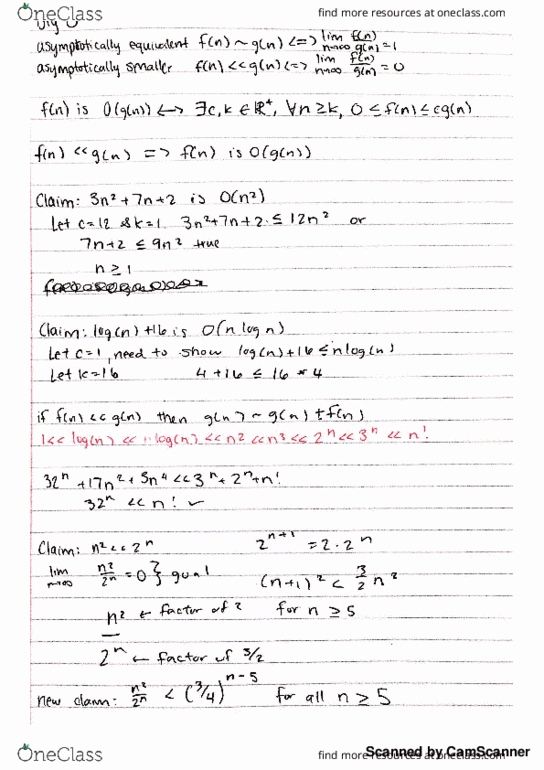 OneClass
find more resources at oneclass.com
Big O
asymptotically equivalent f(n) ~ g(n) <=> lim n→∞ f(n)/g(n) = 1
asymptotically smaller f(n) << g(n) <=> lim n→∞ f(n)/g(n) = 0
f(n) is O(g(n)) <-> ∃c,k ∈ ℝ⁺, ∀n ≥ k, 0 ≤ f(n) ≤ cg(n)
f(n) << g(n) => f(n) is O(g(n))
Claim: 3n² + 7n + 2 is O(n²)
Let c=12 & k=1. 3n² + 7n + 2 ≤ 12n² or
7n + 2 ≤ 9n² true
n ≥ 1
Claim: log(n) + 16 is O(n log n)
Let c=1, need to show log(n) + 16 ≤ n log(n)
Let k=16 4 + 16 ≤ 16 * 4
if f(n) << g(n) then g(n) ~ g(n) ± f(n)
1 << log(n) << n log(n) << n² << n³ << 2ⁿ << 3ⁿ << n!
32ⁿ + 17n² + 5n⁴ << 3ⁿ + 2ⁿ + n!
32ⁿ << n! ✓
Claim: n² << 2ⁿ 2ⁿ⁺¹ = 2·2ⁿ
lim n→∞ n²/2ⁿ = 0 } goal (n+1)² < 3/2 n²
n² ← factor of 2 for n ≥ 5
2ⁿ ← factor of 3/2
new claim: n²/2ⁿ < (3/4)ⁿ⁻⁵ for all n ≥ 5
OneClass
find more resources at oneclass.com
Scanned by CamScanner